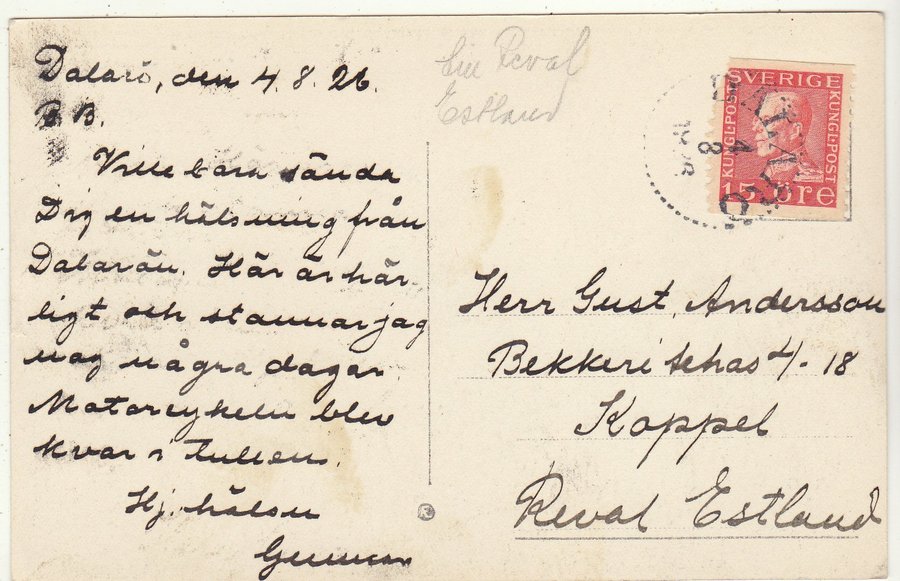 Dalarö, den 4.8.26.
B B.
Ville bara sända
Dig en hälsning från
Dalarön. Här är här-
ligt och stannar jag
nog några dagar.
Motorcykeln blev
kvar i tullen.
Hj. hälsn
Gunnar
Reval
Estland
SVERIGE
KUNGL·POST
KUNGL·POST
15 ÖRE
DALARÖ
4
8
Herr Gust. Andersson
Bekkeri tehas 4/- 18
Koppel
Reval Estland